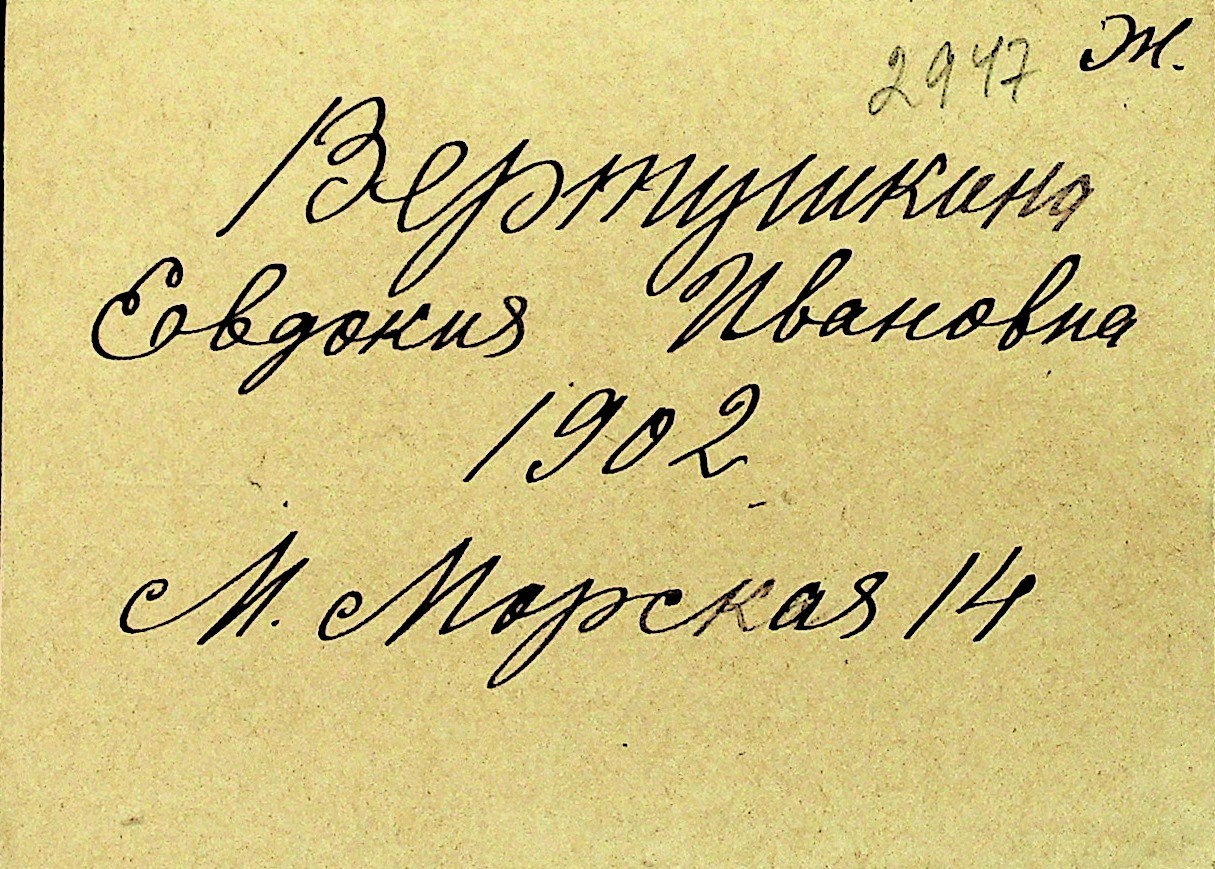 2947 Ж.
Вертушкина
Евдокия Ивановна
1902
М. Морская 14